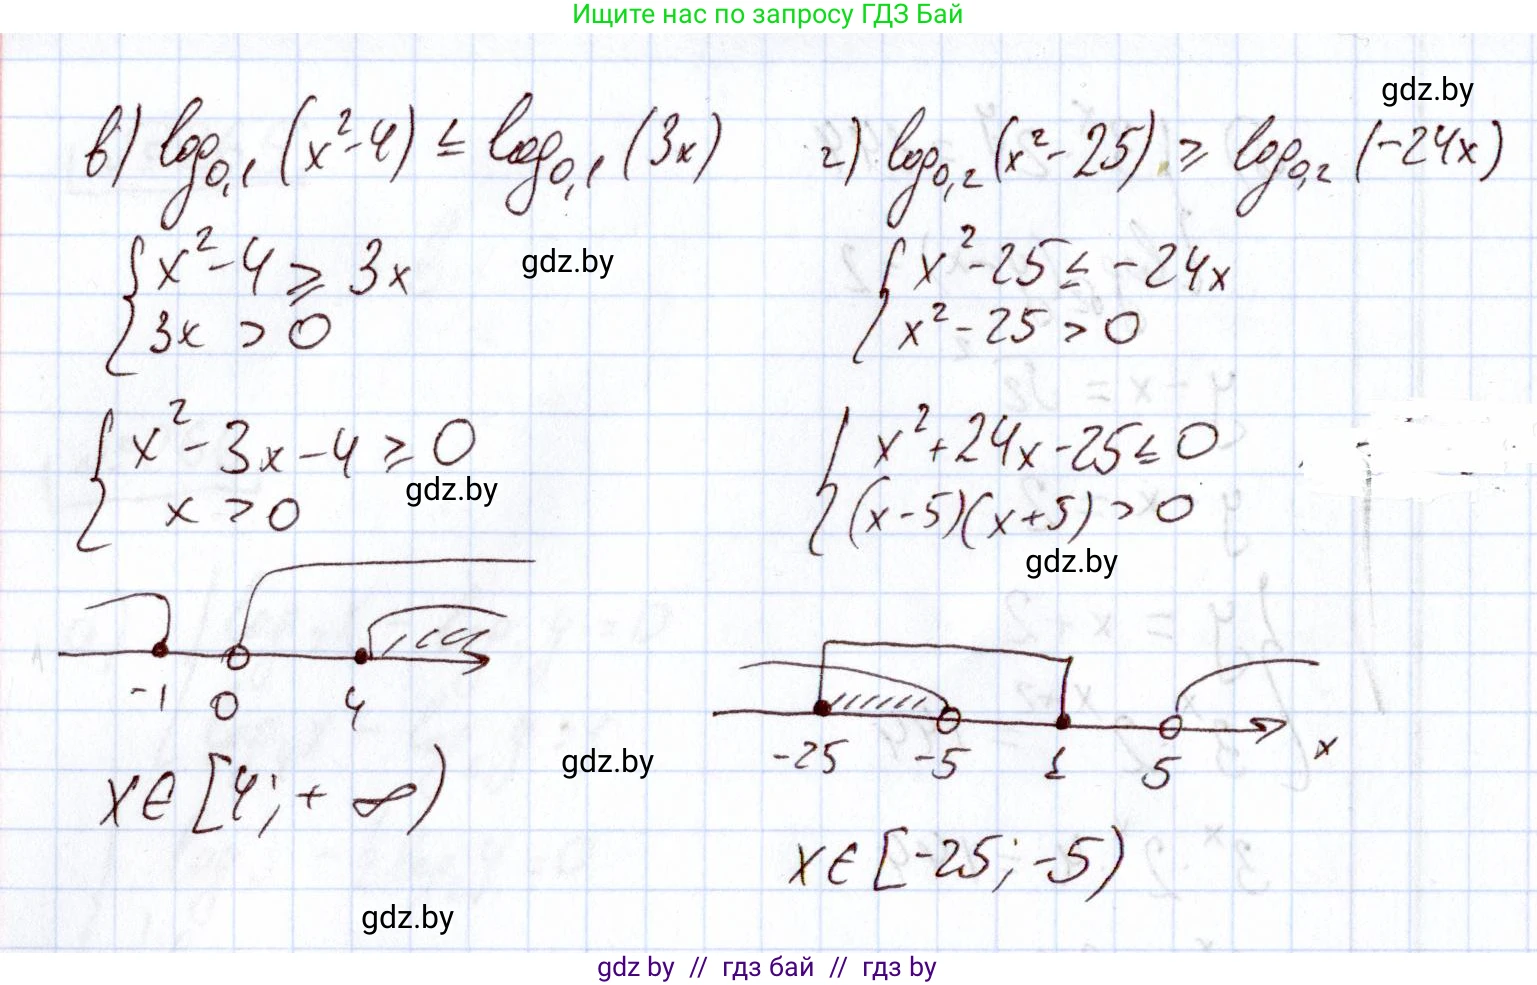 Ищите нас по запросу ГДЗ Бай
gdz.by
в) log₀,₁ (x² - 4) ≤ log₀,₁ (3x)
{ x² - 4 ≥ 3x
3x > 0
gdz.by
{ x² - 3x - 4 ≥ 0
x > 0
gdz.by
-1 0 4
x ∈ [4; + ∞)
gdz.by
г) log₀,₂ (x² - 25) ≥ log₀,₂ (-24x)
{ x² - 25 ≤ -24x
x² - 25 > 0
{ x² + 24x - 25 ≤ 0
(x - 5)(x + 5) > 0
gdz.by
-25 -5 1 5 x
x ∈ [-25; -5)
gdz.by
gdz by // гдз бай // гдз by